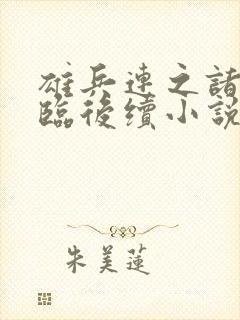 雄兵連之諸
臨後續小說
朱美蓮